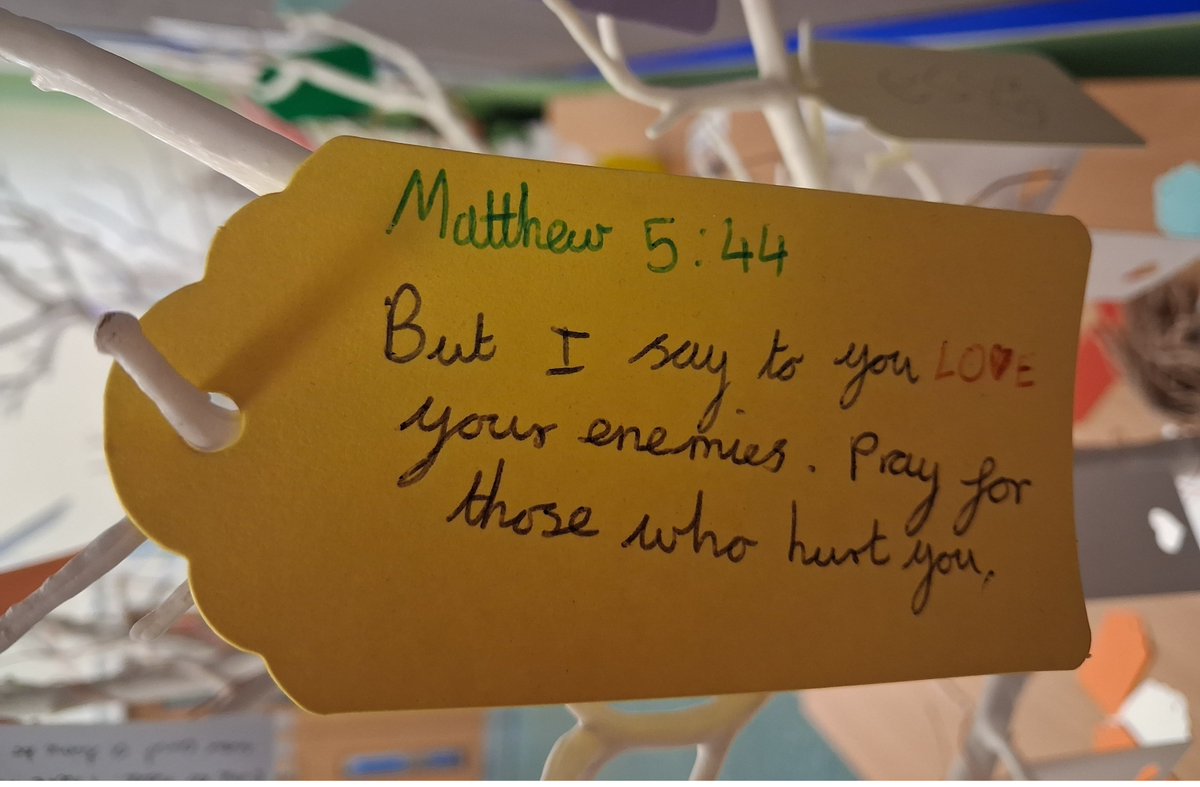 Matthew 5:44
But I say to you LOVE
your enemies. Pray for
those who hurt you.